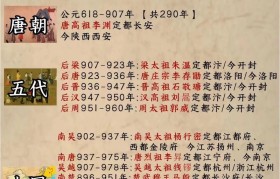 唐朝
公元618-907年【共290年】
唐高祖李渊定都长安
今陕西西安
五代
后梁907-923年:梁太祖朱温定都汴/今开封
后唐923-936年:唐庄宗李存勖定都洛阳/今洛阳
后晋936-947年:晋高祖石敬瑭定都汴/今开封
后汉947-950年:汉高祖刘暠定都汴/今开封
后周951-960年:周太祖郭威定都汴/今开封
南吴902-937年:南吴太祖杨行密定都江都府、
西都金陵府 今江苏扬州、南京
南唐937-975年:唐烈祖李昪定都江宁府,今南京
吴越907-978年:吴越太祖钱镠定都杭州/浙江杭州